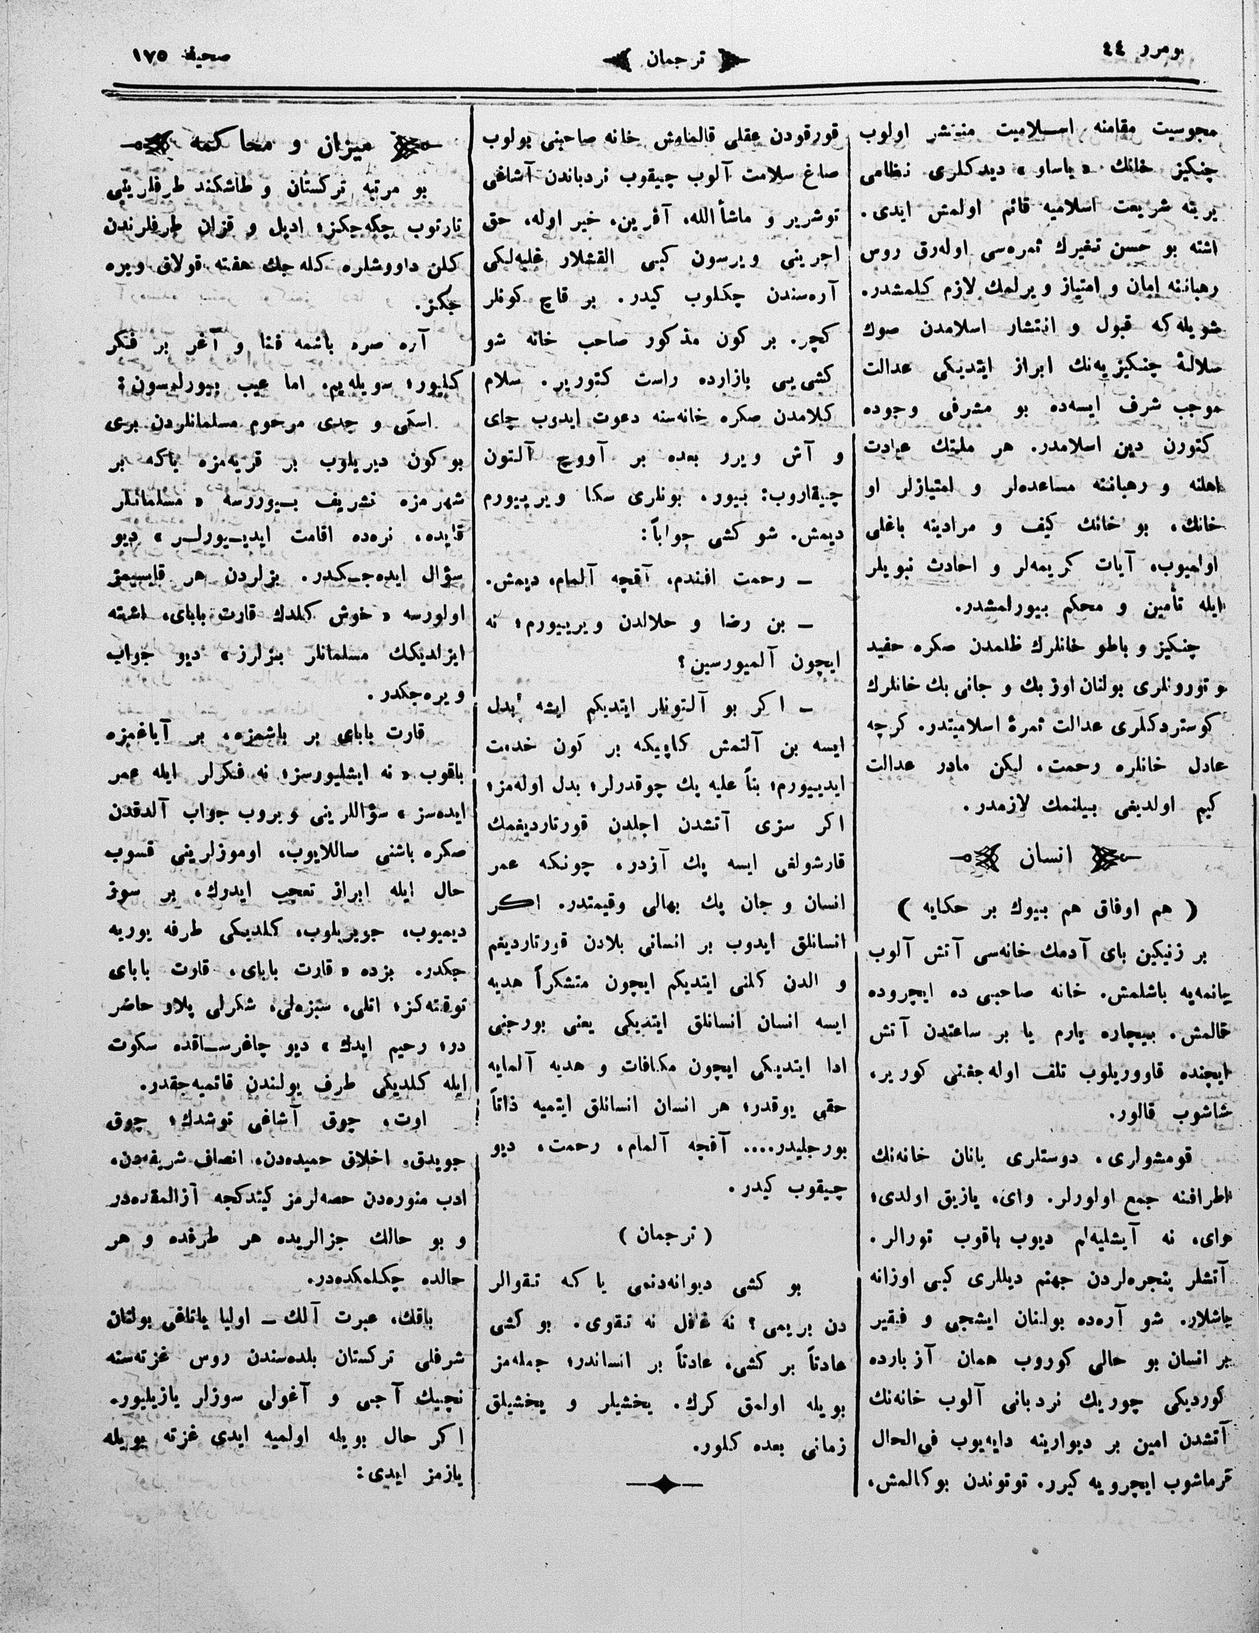 نومرو ٤٤
ترجمان
صحیفه ١٧٥
مجوسیت مقامنه اسـلامیت منتشر اولوب
چنكیز خانك «یاساو» دیدكلری نظامی
یرینه شریعت اسلامیه قائم اولمش ایدی.
اشته بو حسن تغیرك ثمره‌سی اوله‌رق روس
رهباننه امان و امتیاز ویرلمك لازم كلمشدر.
شویله‌كه قبول و انتشار اسلامدن صوك
سلالهٔ چنكیزیه‌نك ابراز ایتدیكی عدالت
موجب شرف ایسه‌ده بو مشرفی وجوده
كتورن دین اسلامدر. هر ملتك عبادت
اهلنه و رهباننه مساعده‌لر و امتیازلر او
خانك، بو خانك كیف و مرادینه باغلی
اولمیوب، آیات كریمه‌لر و احادث نبویلر
ایله تأمین و محكم بیورلمشدر.
چنكیز و باطو خانلرك ظلمدن صكره حفید
و تورونلری بولنان اوزبك و جانی بك خانلرك
كوستردكلری عدالت ثمرهٔ اسلامیتدر. كرچه
عادل خانلره رحمت، لیكن مادر عدالت
كیم اولدیغی بیلنمك لازمدر.
انسان
( هم اوفاق هم بیوك بر حكایه )
بر زنیكین بای آدمك خانه‌سی آتش آلوب
یانمه‌یه باشلمش. خانه صاحبی ده ایچروده
قالمش. بیچاره یارم یا بر ساعتدن آتش
ایچنده قاووریلوب تلف اوله‌جغنی كوریر،
شاشوب قالور.
قومشولری، دوستلری یانان خانه‌نك
اطرافنه جمع اولورلر. وای، یازیق اولدی؛
وای، نه آیشلیه‌لم دیوب باقوب تورالر.
آتشلر پنجره‌لردن جهنم دیللری كبی اوزانه
باشلار. شو آره‌ده بولنان ایشجی و فقیر
بر انسان بو حالی كوروب همان آزبارده
كوردیكی چوریك نردبانی آلوب خانه‌نك
آتشدن امین بر دیوارینه دایه‌یوب فی‌الحال
ترماشوب ایچرویه كیرر. توتوندن بوكالمش،
قورقودن عقلی قالمامش خانه صاحبنی بولوب
صاغ سلامت آلوب چیقوب نردباندن آشاغی
توشریر و ماشأالله، آفرین، خیر اوله، حق
اجرینی ویرسون كبی القشلار غلبه‌لیكی
آره‌سندن چكلوب كیدر. بر قاچ كونلر
كچر. بر كون مذكور صاحب خانه شو
كشی‌یی بازارده راست كتوریر. سلام
كلامدن صكره خانه‌سنه دعوت ایدوب چای
و آش ویرر بعده بر آووچ آلتون
چیقاروب: بیور، بونلری سكا ویرییورم
دیمش. شو كشی جواباً:
ـ رحمت افندم، آقچه آلمام، دیمش.
ـ بن رضا و حلالدن ویرییورم؛ نه
ایچون آلمیورسین؟
ـ اكر بو آلتونلر ایتدیكم ایشه بدل
ایسه بن آلتمش كاپیكه بر كون خدمت
ایدییورم؛ بناً علیه پك چوقدرلر؛ بدل اوله‌مز؛
اكر سزی آتشدن اجلدن قورتاردیغمك
قارشولغی ایسه پك آزدر. چونكه عمر
انسان و جان پك بهالی وقیمتدر. اكر
انسانلق ایدوب بر انسانی بلادن قورتاردیغم
و الدن كلنی ایتدیكم ایچون متشكراً هدیه
ایسه انسان انسانلق ایتدیكی یعنی بورجنی
ادا ایتدیكی ایچون مكافات و هدیه آلمایه
حقی یوقدر؛ هر انسان انسانلق ایتمیه ذاتاً
بورجلیدر.... آقچه آلمام، رحمت، دیو
چیقوب كیدر.
( ترجمان )
بو كشی دیوانه‌دنمی یا كه تقوالر
دن بریمی؟ نه غافل نه تقوی. بو كشی
عادتاً بر كشی، عادتاً بر انساندر؛ جمله‌مز
بویله اولمق كرك. یخشیلر و یخشیلق
زمانی بعده كلور.
میزان و محاكمه
بو مرتبه تركستان و طاشكند طرفلرینی
تارتوب چكه‌جكز؛ ادیل و قزان طرفلرندن
كلن داووشلره كله‌جك هفته قولاق ویره
جكز.
آره صره باشمه قنا و آغر بر فكر
كلیور؛ سویله‌یم، اما عیب بیورلمسون:
اسكی و جدی مرحوم مسلمانلردن بری
بوكون دیریلوب بر قریه‌مزه یاكه بر
شهرمزه تشریف بیوررسه «مسلمانلر
قایده، نره‌ده اقامت ایدیـیورلـر» دیو
سؤال ایده‌جـكدر. بزلردن هر قایسیمز
اولورسه «خوش كلدك قارت بابای، اشته
ایزلدیكك مسلمانلر بنزلرز» دیو جواب
ویره‌جكدر.
قارت بابای بر باشمزه، بر آیاغمزه
باقوب «نه ایشلیورسز؛ نه فكرلر ایله عمر
ایده‌سز» سؤاللرینی ویروب جواب آلدقدن
صكره باشنی صاللایوب، اوموزلرینی قسوب
حال ایله ابراز تعجب ایدرك، بر سوز
دیمیوب، جویریلوب، كلدیكی طرفه یوریه
جكدر. بزده «قارت بابای، قارت بابای
توقته‌كز؛ اتلی، سبزه‌لی، شكرلی پلاو حاضر
در؛ رحیم ایدك» دیو چاغرسـاقده سكوت
ایله كلدیكی طرف یولندن قاتمیه‌جقدر.
اوت، چوق آشاغی توشدك؛ چوق
جویدق. اخلاق حمیده‌دن، انصاف شریفه‌دن،
ادب منوره‌دن حصه‌لرمز كیتدكجه آزالمقده‌در
و بو حالك جزالریده هر طرفده و هر
حالده چكلمكده‌در.
باقك، عبرت آلك ـ اولیا یاتاغی بولنان
شرفلی تركستان بلده‌سندن روس غزته‌سنه
نچیك آجی و آغولی سوزلر یازیلیور.
اكر حال بویله اولمیه ایدی غزته بویله
یازمز ایدی: